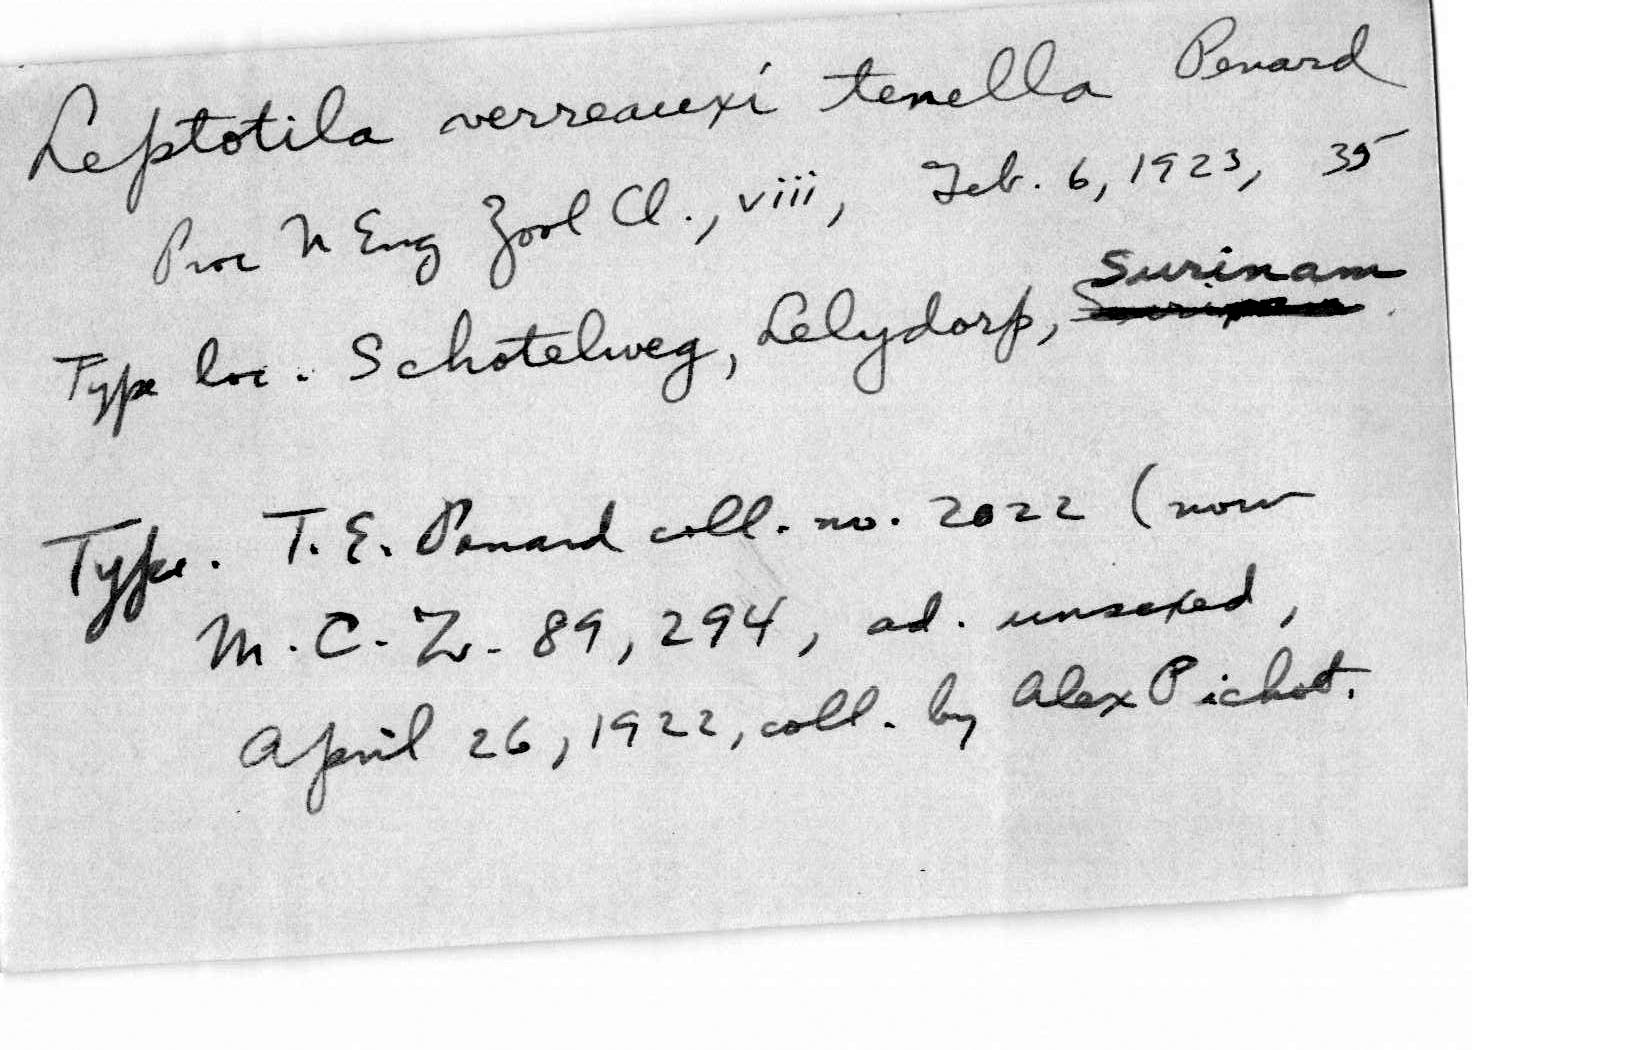 Leptotila verreauxi tenella Penard
Proc N Eng Zool Cl., viii, Feb. 6, 1923, 35
Type loc. Schotelweg, Lelydorp, Surinam
Type. T. E. Penard coll. no. 2022 (now
M. C. Z. 89,294, ad. unsexed,
April 26, 1922, coll. by Alex Pichot.